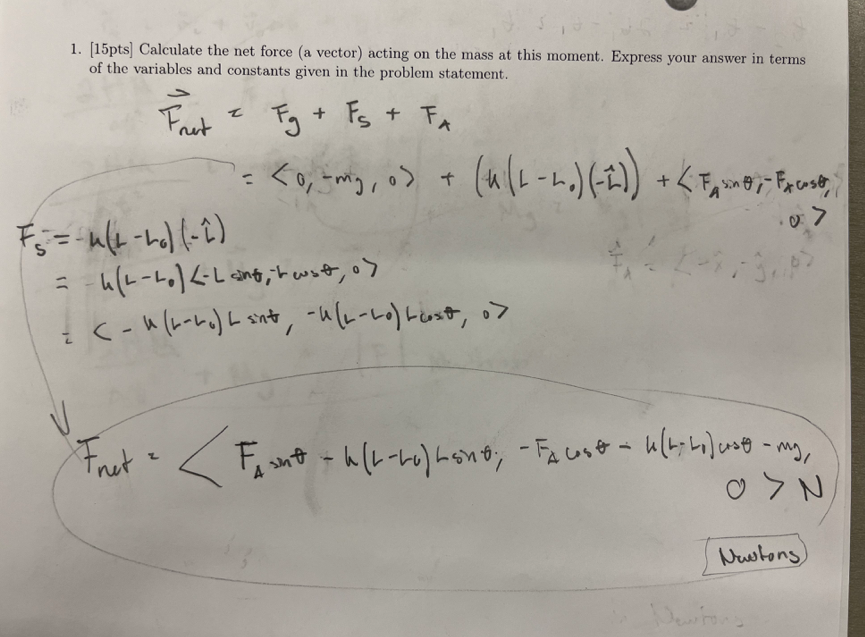 1. [15pts] Calculate the net force (a vector) acting on the mass at this moment. Express your answer in terms
of the variables and constants given in the problem statement.
F⃗net = Fg + Fs + FA
= <0, -mg, 0> + (k(L-L₀)(-L̂)) + <FA sinθ, -FA cosθ,
0>
Fs = -k(L-L₀)(-L̂)
= k(L-L₀)<-L sinθ, -L cosθ, 0>
= <-k(L-L₀)L sinθ, -k(L-L₀)L cosθ, 0>
Fnet = <FA sinθ - k(L-L₀)L sinθ, -FA cosθ - k(L-L₀)cosθ - mg,
0> N
Newtons